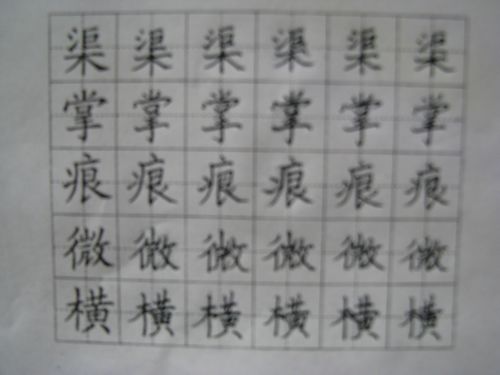 渠渠渠渠渠渠
掌掌掌掌掌掌
痕痕痕痕痕痕
微微微微微微
横横横横横横